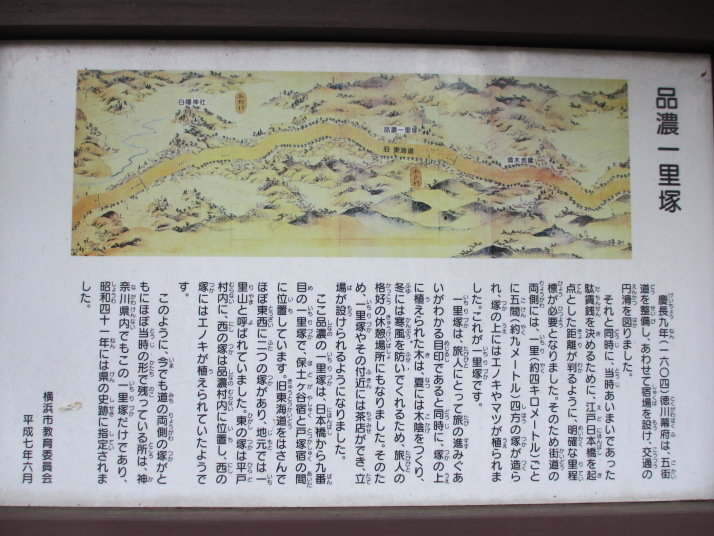 品濃一里塚
慶長九年(一六〇四)徳川幕府は、五街
道を整備し、あわせて宿場を設け、交通の
円滑を図りました。
それと同時に、当時あいまいであった
駄賃銭を決めるために、江戸日本橋を起
点とした距離が判るように、明確な里程
標が必要となりました。そのため街道の
両側には、一里(約四キロメートル)ごと
に五間(約九メートル)四方の塚が造ら
れ、塚の上にはエノキやマツが植えられま
した。これが一里塚です。
一里塚は、旅人にとって旅の進みぐあ
いがわかる目印であると同時に、塚の上
に植えられた木は、夏には木陰をつくり、
冬には寒風を防いでくれるため、旅人の
格好の休憩場所にもなりました。そのた
め、一里塚やその付近には茶店ができ、立
場が設けられるようになりました。
ここ品濃の一里塚は、日本橋から九番
目の一里塚で、保土ヶ谷宿と戸塚宿の間
に位置しています。旧東海道をはさんで
ほぼ東西に二つの塚があり、地元では一
里山と呼ばれていました。東の塚は平戸
村内に、西の塚は品濃村内に位置し、西の
塚にはエノキが植えられていたようで
す。
このように、今でも道の両側の塚がと
もにほぼ当時の形で残っている所は、神
奈川県内でもこの一里塚だけであり、
昭和四十一年には県の史跡に指定されま
した。
横浜市教育委員会
平成七年六月
白幡神社
品濃一里塚
旧東海道
境木地蔵